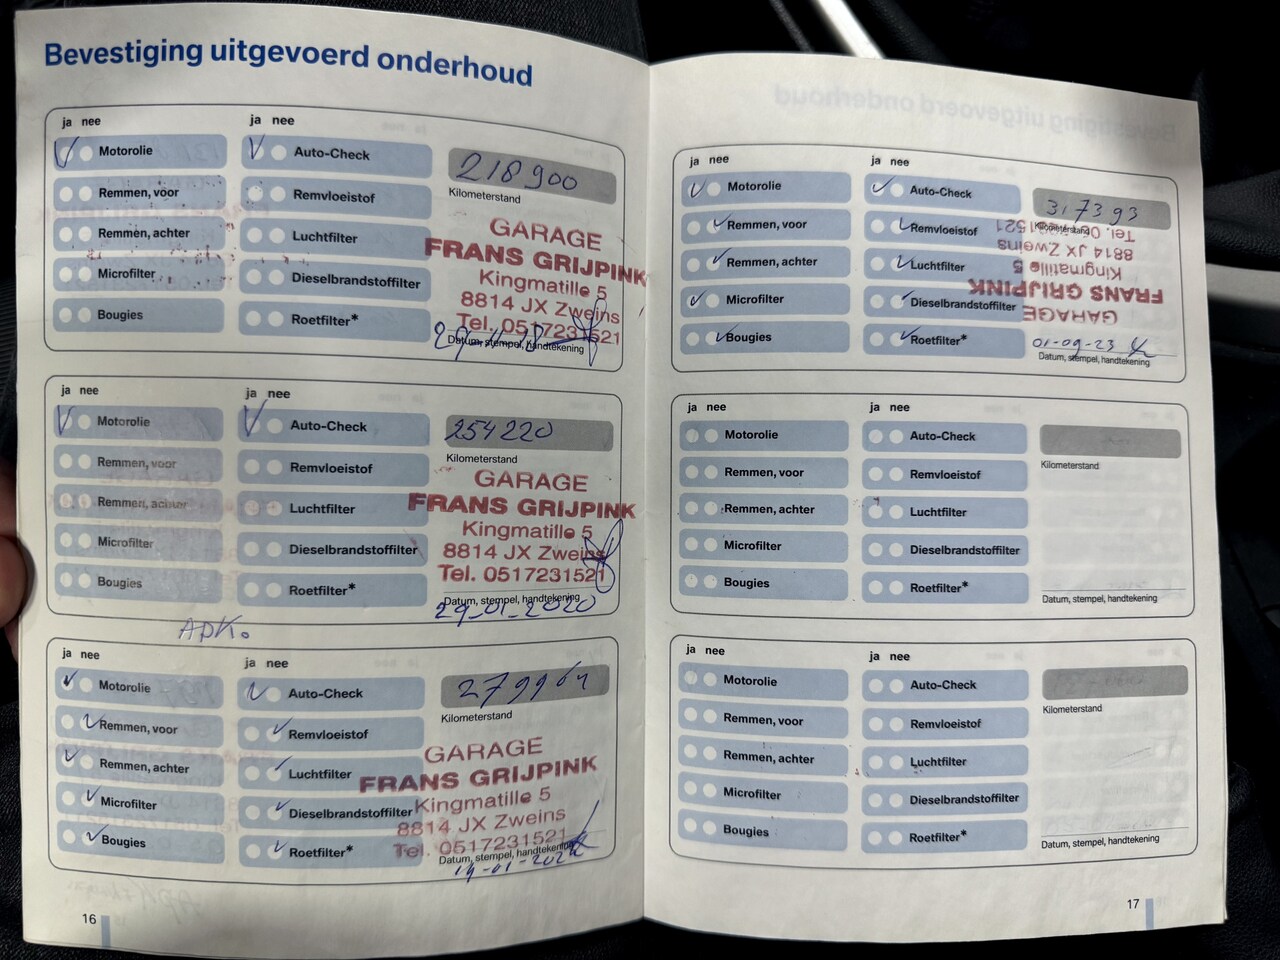 Bevestiging uitgevoerd onderhoud
ja nee
ja nee
Motorolie
Auto-Check
218900
Remmen, voor
Remvloeistof
Kilometerstand
Remmen, achter
Luchtfilter
Microfilter
Dieselbrandstoffilter
Bougies
Roetfilter*
GARAGE
FRANS GRIJPINK
Kingmatille 5
8814 JX Zweins
Tel. 0517231521
Datum, stempel, handtekening
ja nee
ja nee
Motorolie
Auto-Check
254220
Remmen, voor
Remvloeistof
Kilometerstand
Remmen, achter
Luchtfilter
Microfilter
Dieselbrandstoffilter
Bougies
Roetfilter*
GARAGE
FRANS GRIJPINK
Kingmatille 5
8814 JX Zweins
Tel. 0517231521
Datum, stempel, handtekening
29-01-2020
APK.
ja nee
ja nee
Motorolie
Auto-Check
Remmen, voor
Remvloeistof
Kilometerstand
Remmen, achter
Luchtfilter
Microfilter
Dieselbrandstoffilter
Bougies
Roetfilter*
GARAGE
FRANS GRIJPINK
Kingmatille 5
8814 JX Zweins
Tel. 0517231521
Datum, stempel, handtekening
16
ja nee
ja nee
Motorolie
Auto-Check
317393
Remmen, voor
Remvloeistof
Kilometerstand
Remmen, achter
Luchtfilter
Microfilter
Dieselbrandstoffilter
Bougies
Roetfilter*
GARAGE
FRANS GRIJPINK
Kingmatille 5
8814 JX Zweins
Tel. 0517231521
01-09-23
Datum, stempel, handtekening
ja nee
ja nee
Motorolie
Auto-Check
Remmen, voor
Remvloeistof
Kilometerstand
Remmen, achter
Luchtfilter
Microfilter
Dieselbrandstoffilter
Bougies
Roetfilter*
Datum, stempel, handtekening
ja nee
ja nee
Motorolie
Auto-Check
Remmen, voor
Remvloeistof
Kilometerstand
Remmen, achter
Luchtfilter
Microfilter
Dieselbrandstoffilter
Bougies
Roetfilter*
Datum, stempel, handtekening
17